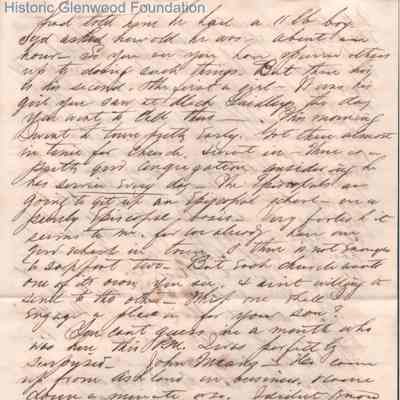 Historic Glenwood Foundation
had told him he had a 11 lb boy
Syd asked how old he was – about an
hour – So you see you have spurred others
up to doing such things. But then boy
is his second. Other first a girl – It was his
girl you saw at the day
you went to tell them – This morning
I went to town pretty early. Got there almost
in time for Church, I went in – There is a
pretty good congregation considering he
has service every day – The Episcopals are
going to get up an Episcopal school – on a
purely Episcopal basis – Very foolish it
seems to me, for we already have one
good school in town & there is not enough
to support two – But each church wants
one of its own, you see, & aint willing to
send to the other – one shall I
engage a place in for your son?
You can't guess in a month who
was here this P.M. I was perfectly
surprised – John Means – He came
up from Ashland on business, & came
down a minute or so. I didn't know